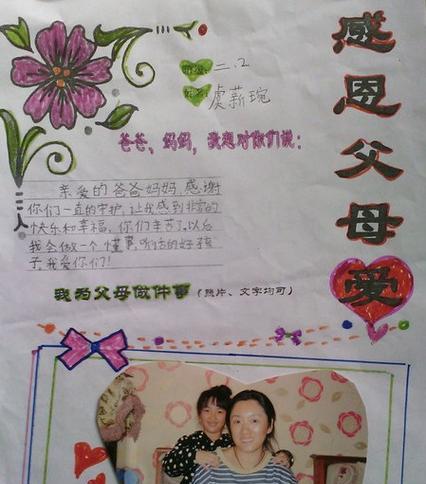 感恩父母爱
二.2
虞薪琬
爸爸、妈妈,我想对你们说:
亲爱的爸爸妈妈,感谢
你们一直的守护,让我感到非常的
快乐和幸福,你们辛苦了,以后
我会做一个懂事,听话的好孩
子,我爱你们!
我为父母做件事(照片、文字均可)